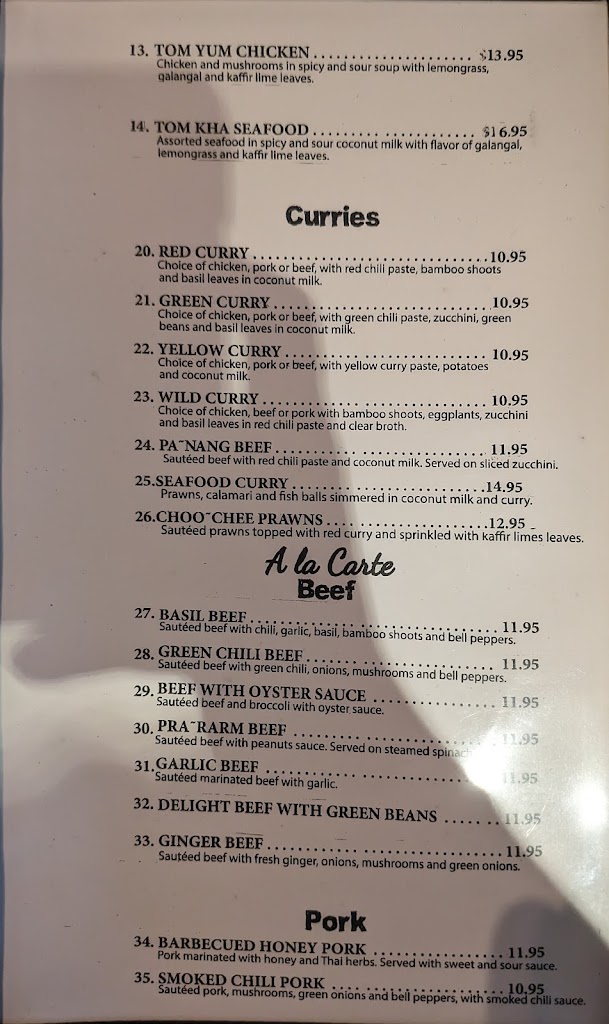 13. TOM YUM CHICKEN . . . . . . . . . . . . . . . . . . . . . . $13.95
Chicken and mushrooms in spicy and sour soup with lemongrass,
galangal and kaffir lime leaves.
14. TOM KHA SEAFOOD . . . . . . . . . . . . . . . . . . . . . . $16.95
Assorted seafood in spicy and sour coconut milk with flavor of galangal,
lemongrass and kaffir lime leaves.
Curries
20. RED CURRY . . . . . . . . . . . . . . . . . . . . . . . . . . . . . . . . 10.95
Choice of chicken, pork or beef, with red chili paste, bamboo shoots
and basil leaves in coconut milk.
21. GREEN CURRY . . . . . . . . . . . . . . . . . . . . . . . . . . . . . 10.95
Choice of chicken, pork or beef, with green chili paste, zucchini, green
beans and basil leaves in coconut milk.
22. YELLOW CURRY . . . . . . . . . . . . . . . . . . . . . . . . . . . 10.95
Choice of chicken, pork or beef, with yellow curry paste, potatoes
and coconut milk.
23. WILD CURRY . . . . . . . . . . . . . . . . . . . . . . . . . . . . . . 10.95
Choice of chicken, beef or pork with bamboo shoots, eggplants, zucchini
and basil leaves in red chili paste and clear broth.
24. PA~NANG BEEF . . . . . . . . . . . . . . . . . . . . . . . . . . . 11.95
Sautéed beef with red chili paste and coconut milk. Served on sliced zucchini.
25.SEAFOOD CURRY . . . . . . . . . . . . . . . . . . . . . . . . . .14.95
Prawns, calamari and fish balls simmered in coconut milk and curry.
26.CHOO~CHEE PRAWNS . . . . . . . . . . . . . . . . . . . . . .12.95
Sautéed prawns topped with red curry and sprinkled with kaffir limes leaves.
A la Carte
Beef
27. BASIL BEEF . . . . . . . . . . . . . . . . . . . . . . . . . . . . . . . . . . 11.95
Sautéed beef with chili, garlic, basil, bamboo shoots and bell peppers.
28. GREEN CHILI BEEF . . . . . . . . . . . . . . . . . . . . . . . . . . 11.95
Sautéed beef with green chili, onions, mushrooms and bell peppers.
29. BEEF WITH OYSTER SAUCE . . . . . . . . . . . . . . . . . 11.95
Sautéed beef and broccoli with oyster sauce.
30. PRA~RARM BEEF . . . . . . . . . . . . . . . . . . . . . . . . . . . . 11.95
Sautéed beef with peanuts sauce. Served on steamed spinach
31.GARLIC BEEF . . . . . . . . . . . . . . . . . . . . . . . . . . . . . . . . 11.95
Sautéed marinated beef with garlic.
32. DELIGHT BEEF WITH GREEN BEANS . . . . . . . 11.95
33. GINGER BEEF . . . . . . . . . . . . . . . . . . . . . . . . . . . . . . . . 11.95
Sautéed beef with fresh ginger, onions, mushrooms and green onions.
Pork
34. BARBECUED HONEY PORK . . . . . . . . . . . . . . . . . . 11.95
Pork marinated with honey and Thai herbs. Served with sweet and sour sauce.
35. SMOKED CHILI PORK . . . . . . . . . . . . . . . . . . . . . . . 10.95
Sautéed pork, mushrooms, green onions and bell peppers, with smoked chili sauce.